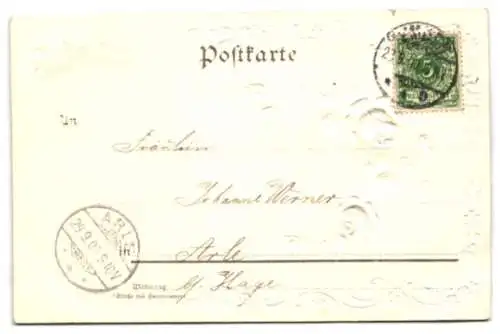 Postkarte
An
5
Fräulein
Johanne Werner
ARLE
29.9.0
in
Arle
Wohnung
b/ Hage
(Straße und Hausnummer)